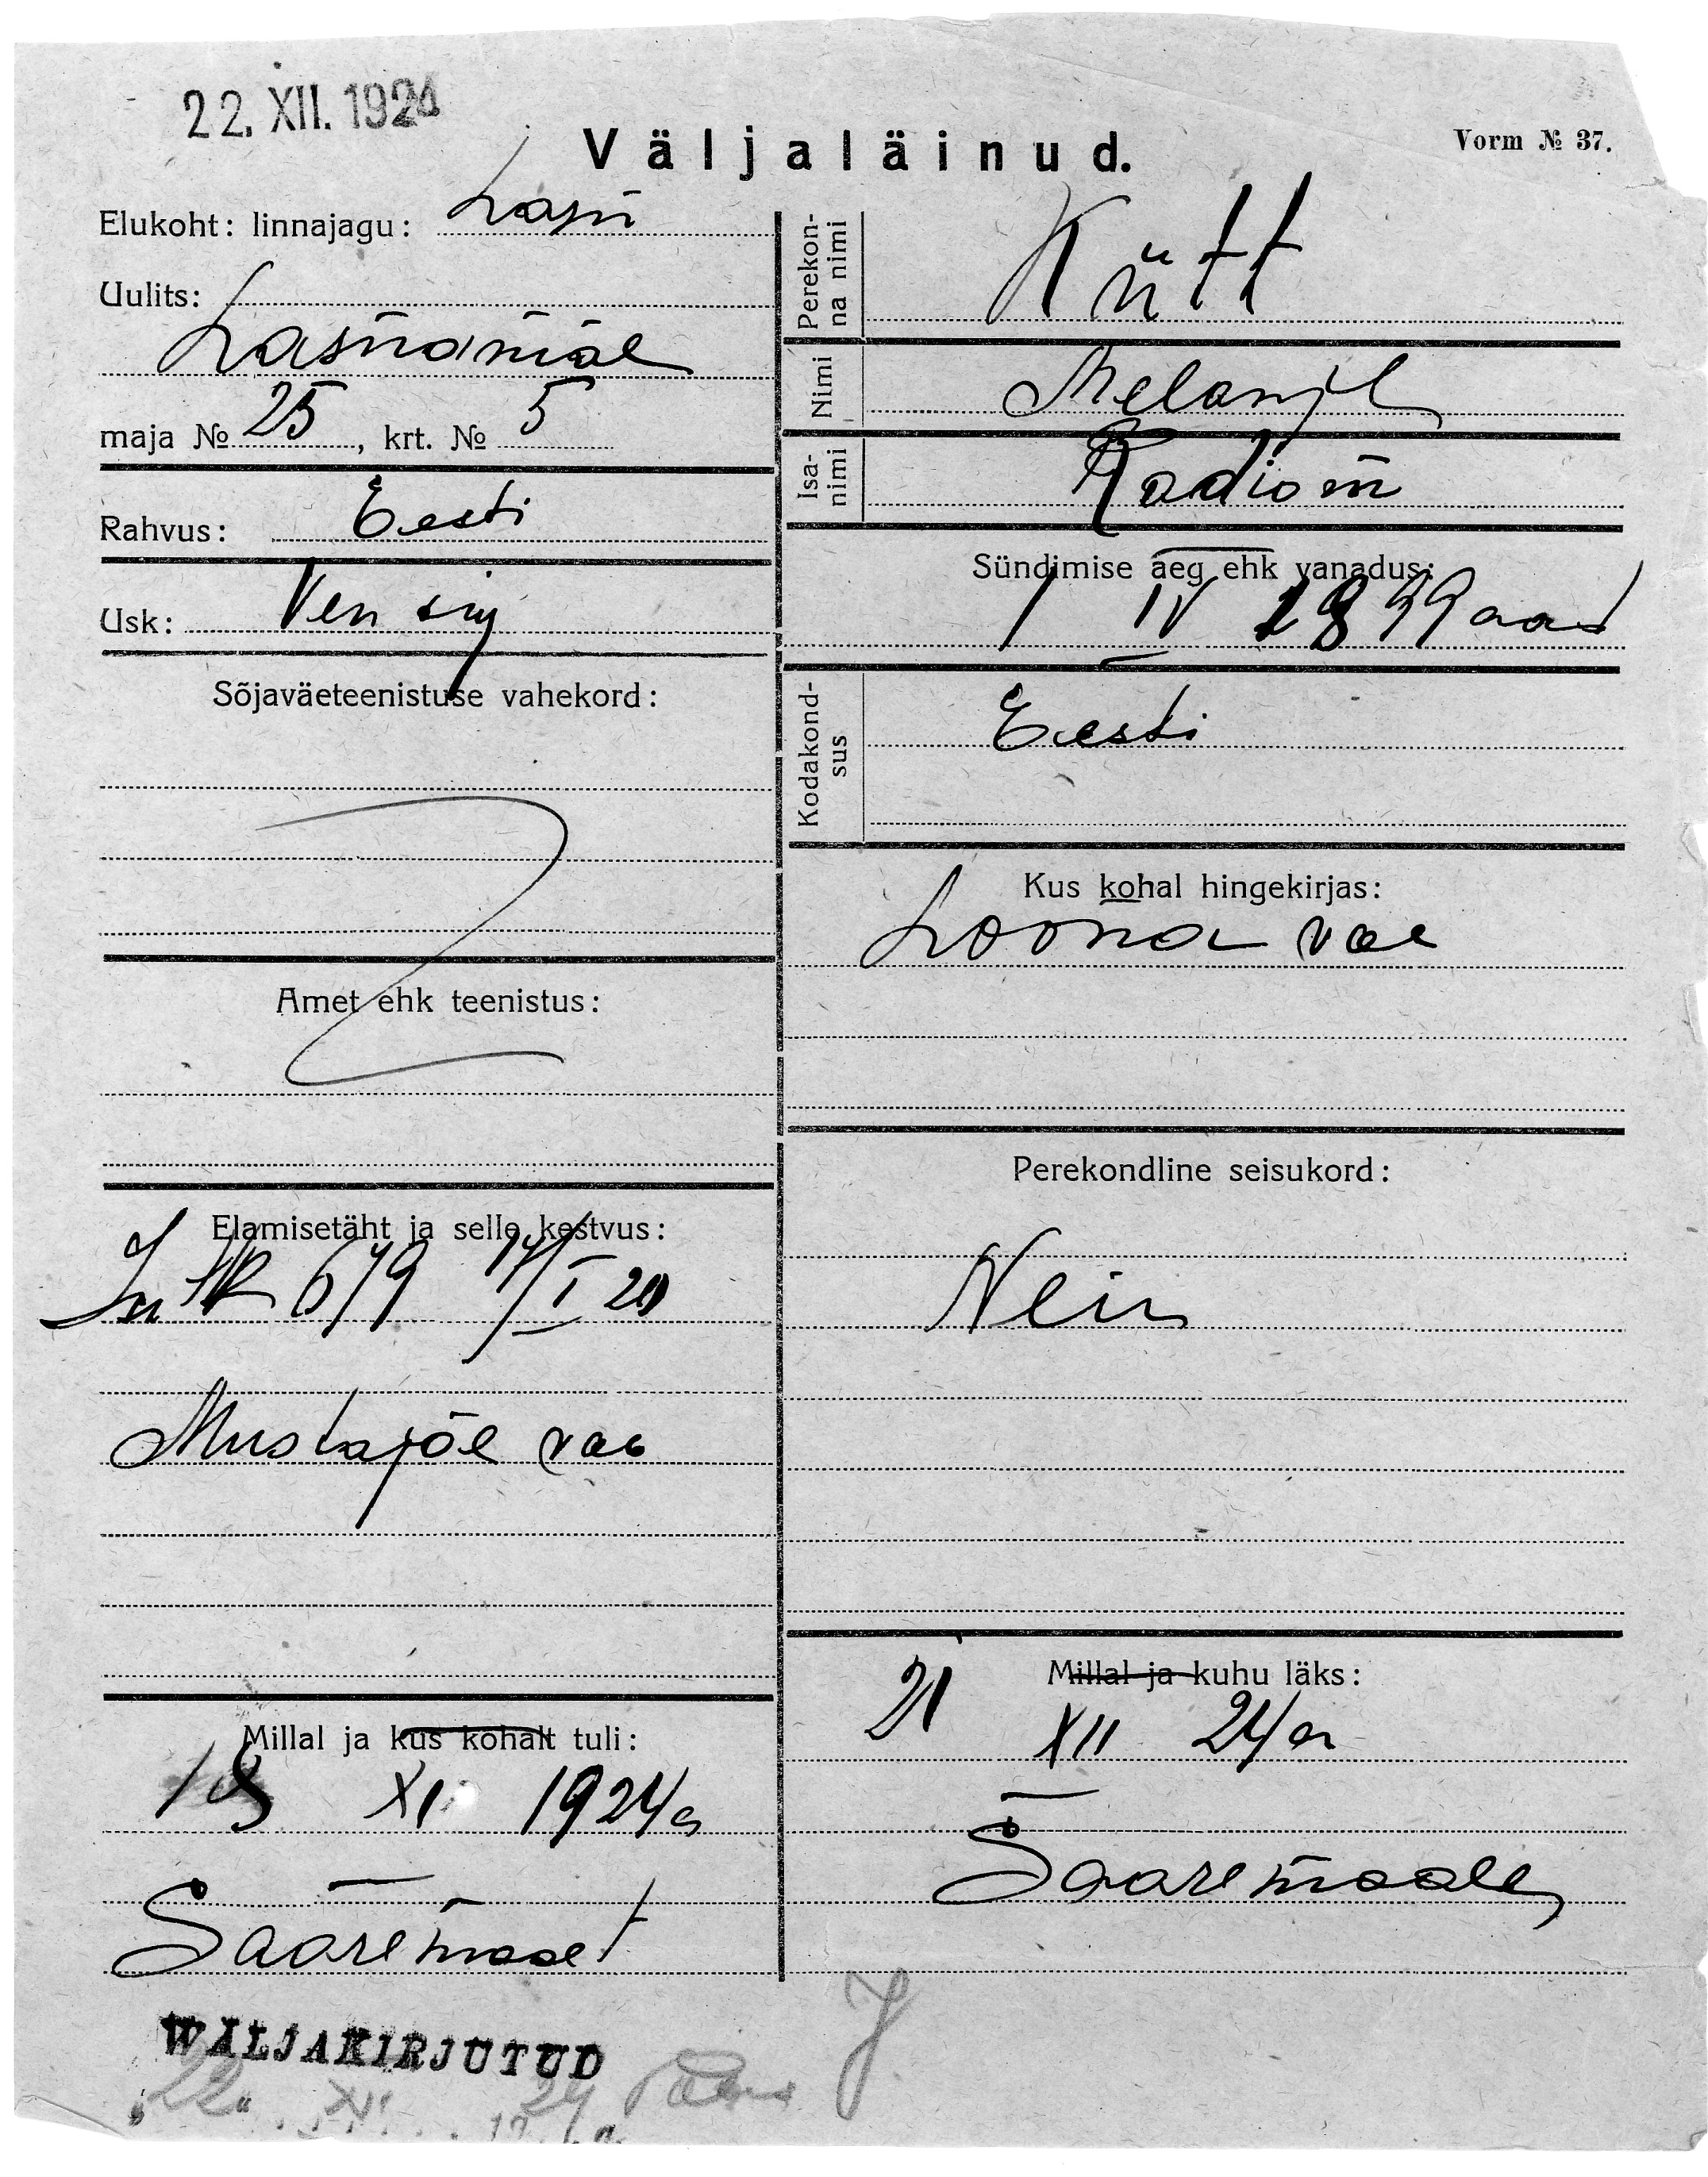 22. XII. 1924
Väljaläinud.
Vorm № 37.
Elukoht: linnajagu:
Uulits:
Lasnamäe
maja № 25, krt. № 5
Rahvus: Eesti
Usk: Ven
Sõjaväeteenistuse vahekord:
Amet ehk teenistus:
Elamisetäht ja selle kestvus:
679 I 20
Mustajõe
Millal ja kus kohalt tuli:
18 XI 1924 a
Saaremaet
WALJAKIRJUTUD
Perekonna nimi
Kütt
Nimi
Isanimi
Radiom
Sündimise aeg ehk vanadus:
1 IV 1899 aas
Kodakondsus
Eesti
Kus kohal hingekirjas:
Loona vae
Perekondline seisukord:
Neiu
Millal ja kuhu läks:
21 XII 24 a
Saaremaale